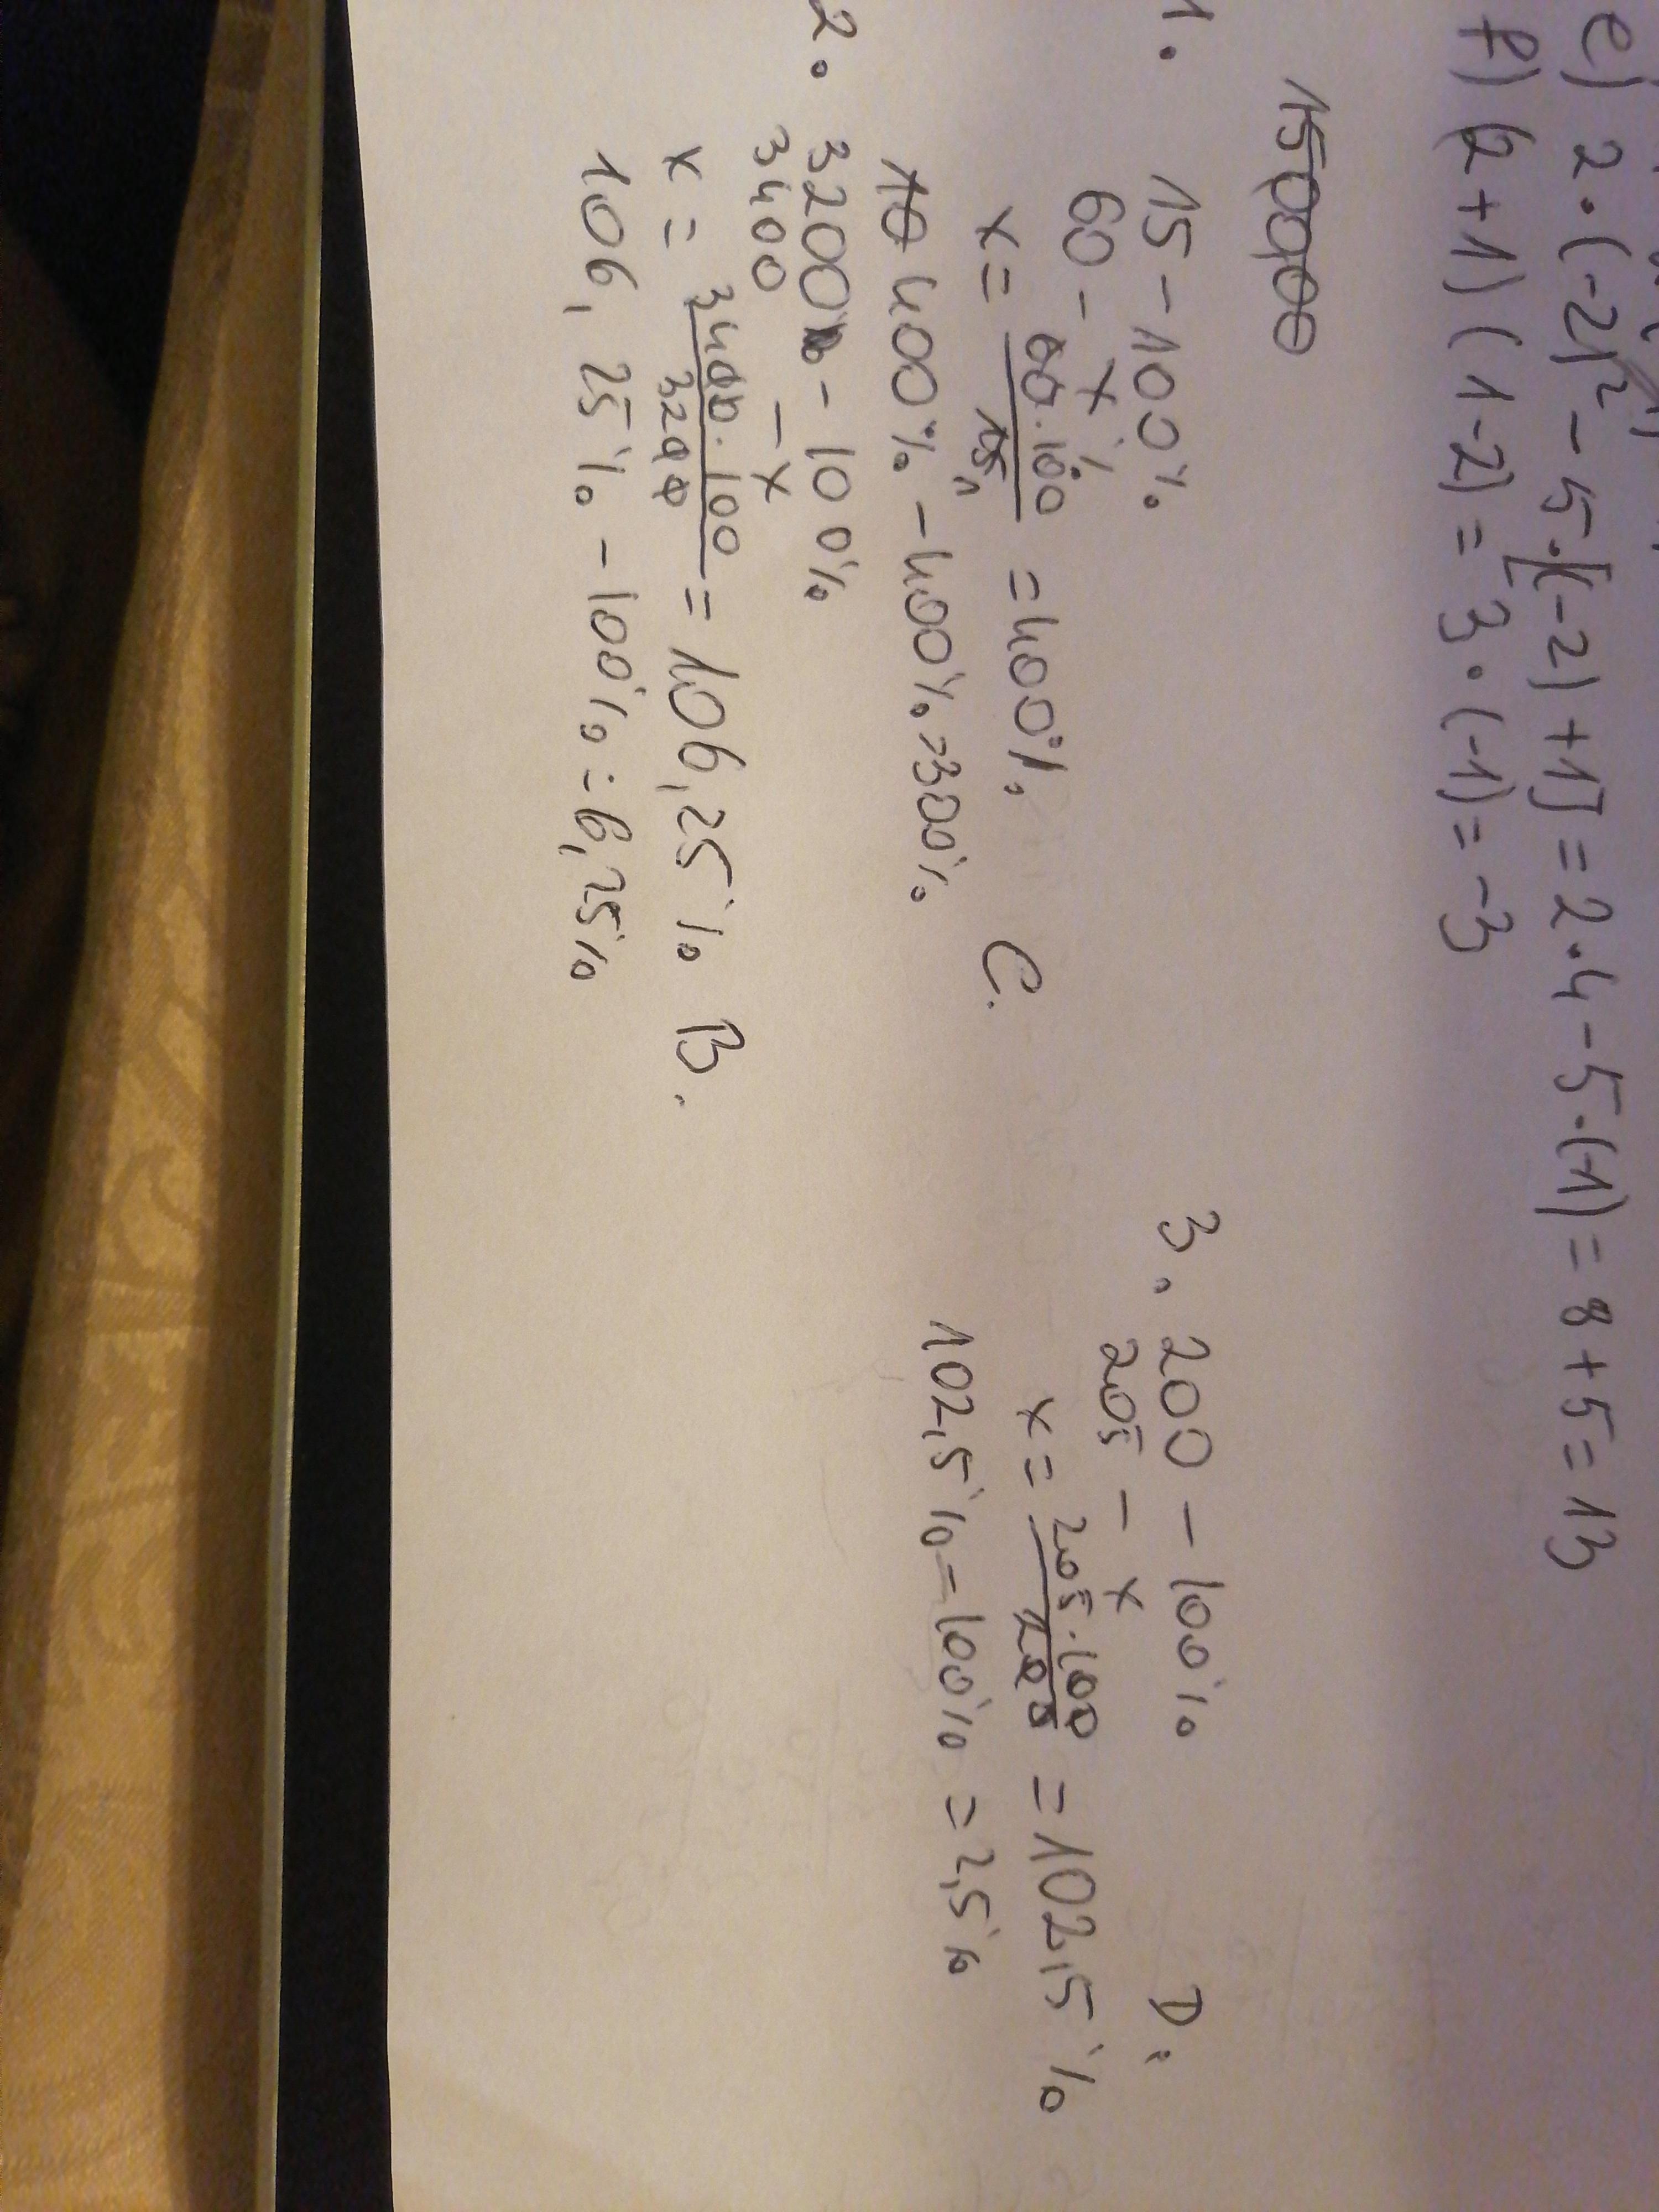 e) 2·(-2)² - 5·[(-2)+1] = 2·4 - 5·(-1) = 8 + 5 = 13
f) (2+1)(1-2) = 3·(-1) = -3
1. 15 - 100%
60 - x%
x = 60·100 / 15 = 400% C.
400% - 400% = 300%
2. 3200 - 100%
3400 - x
x = 3400·100 / 3200 = 106,25% B.
106,25% - 100% = 6,25%
3. 200 - 100% D.
205 - x
x = 205·100 / 200 = 102,5%
102,5% - 100% = 2,5%